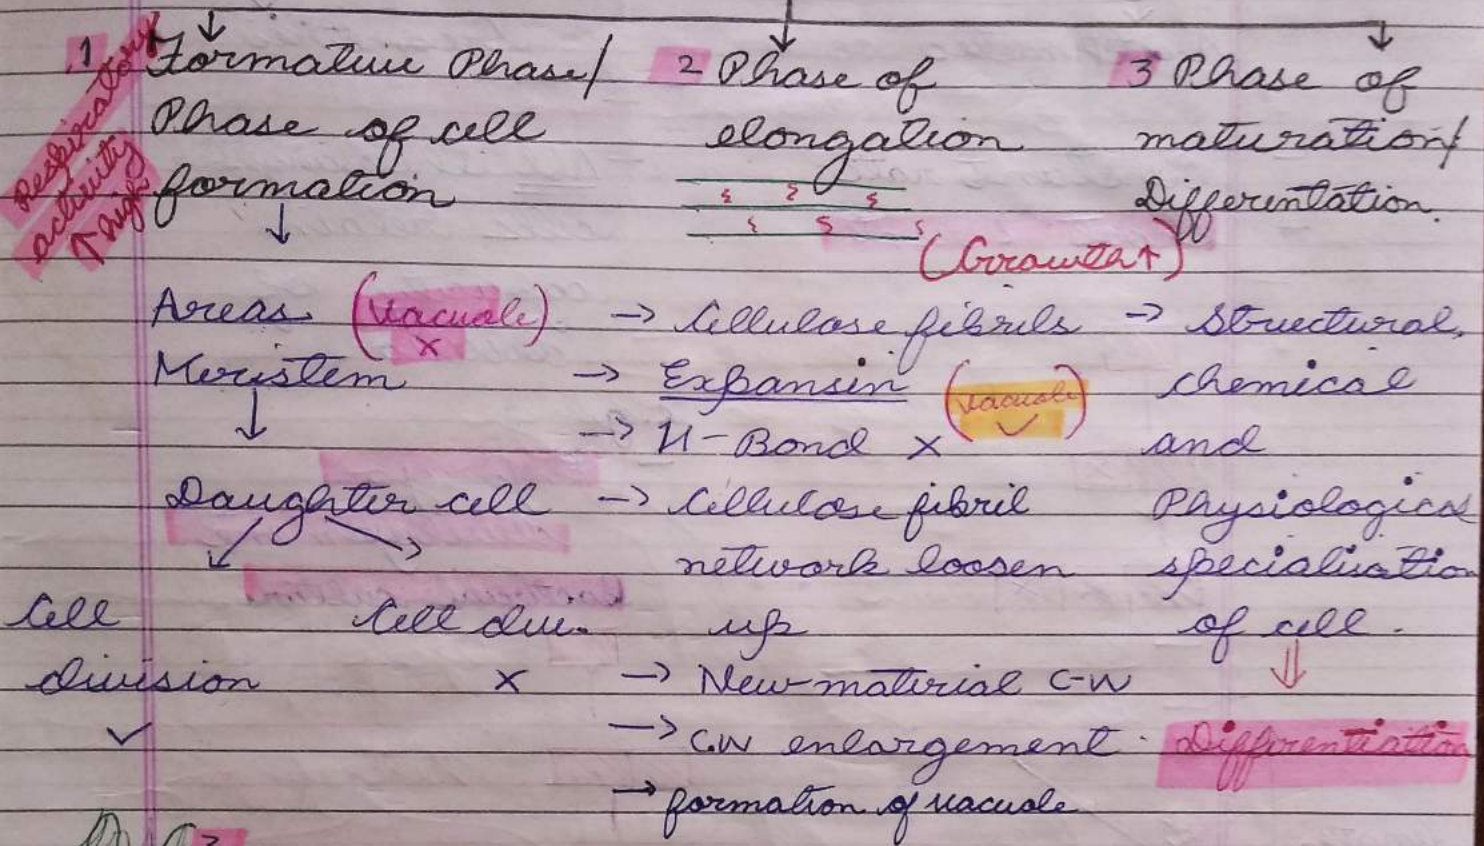 1 Formative Phase/
Phase of cell
formation
Respiratory
activity
↑ high
↓
Areas (Vacuole)
x
Meristem
↓
Daughter cell
Cell
division
✓
Cell divi.
x
2 Phase of
elongation
(Growth↑)
→ Cellulose fibrils
→ Expansin (Vacuole)
✓
→ H-Bond x
→ Cellulose fibril
network loosen
up
→ New-material C-W
→ C.W enlargement.
→ formation of vacuole
3 Phase of
maturation/
Differentation.
→ Structural,
chemical
and
Physiological
specialisation
of cell.
⇓
Differentiation